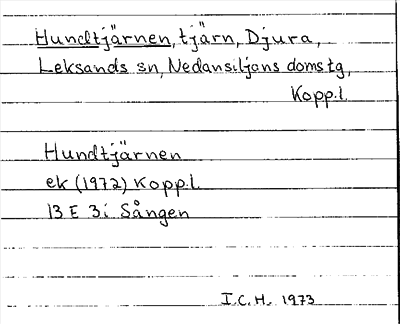 Hundtjärnen, tjärn, Djura,
Leksands sn, Nedansiljans domstg,
Kopp.l.
Hundtjärnen
ek (1972) Kopp.l.
13 E 3i Sången
I.C.H. 1973